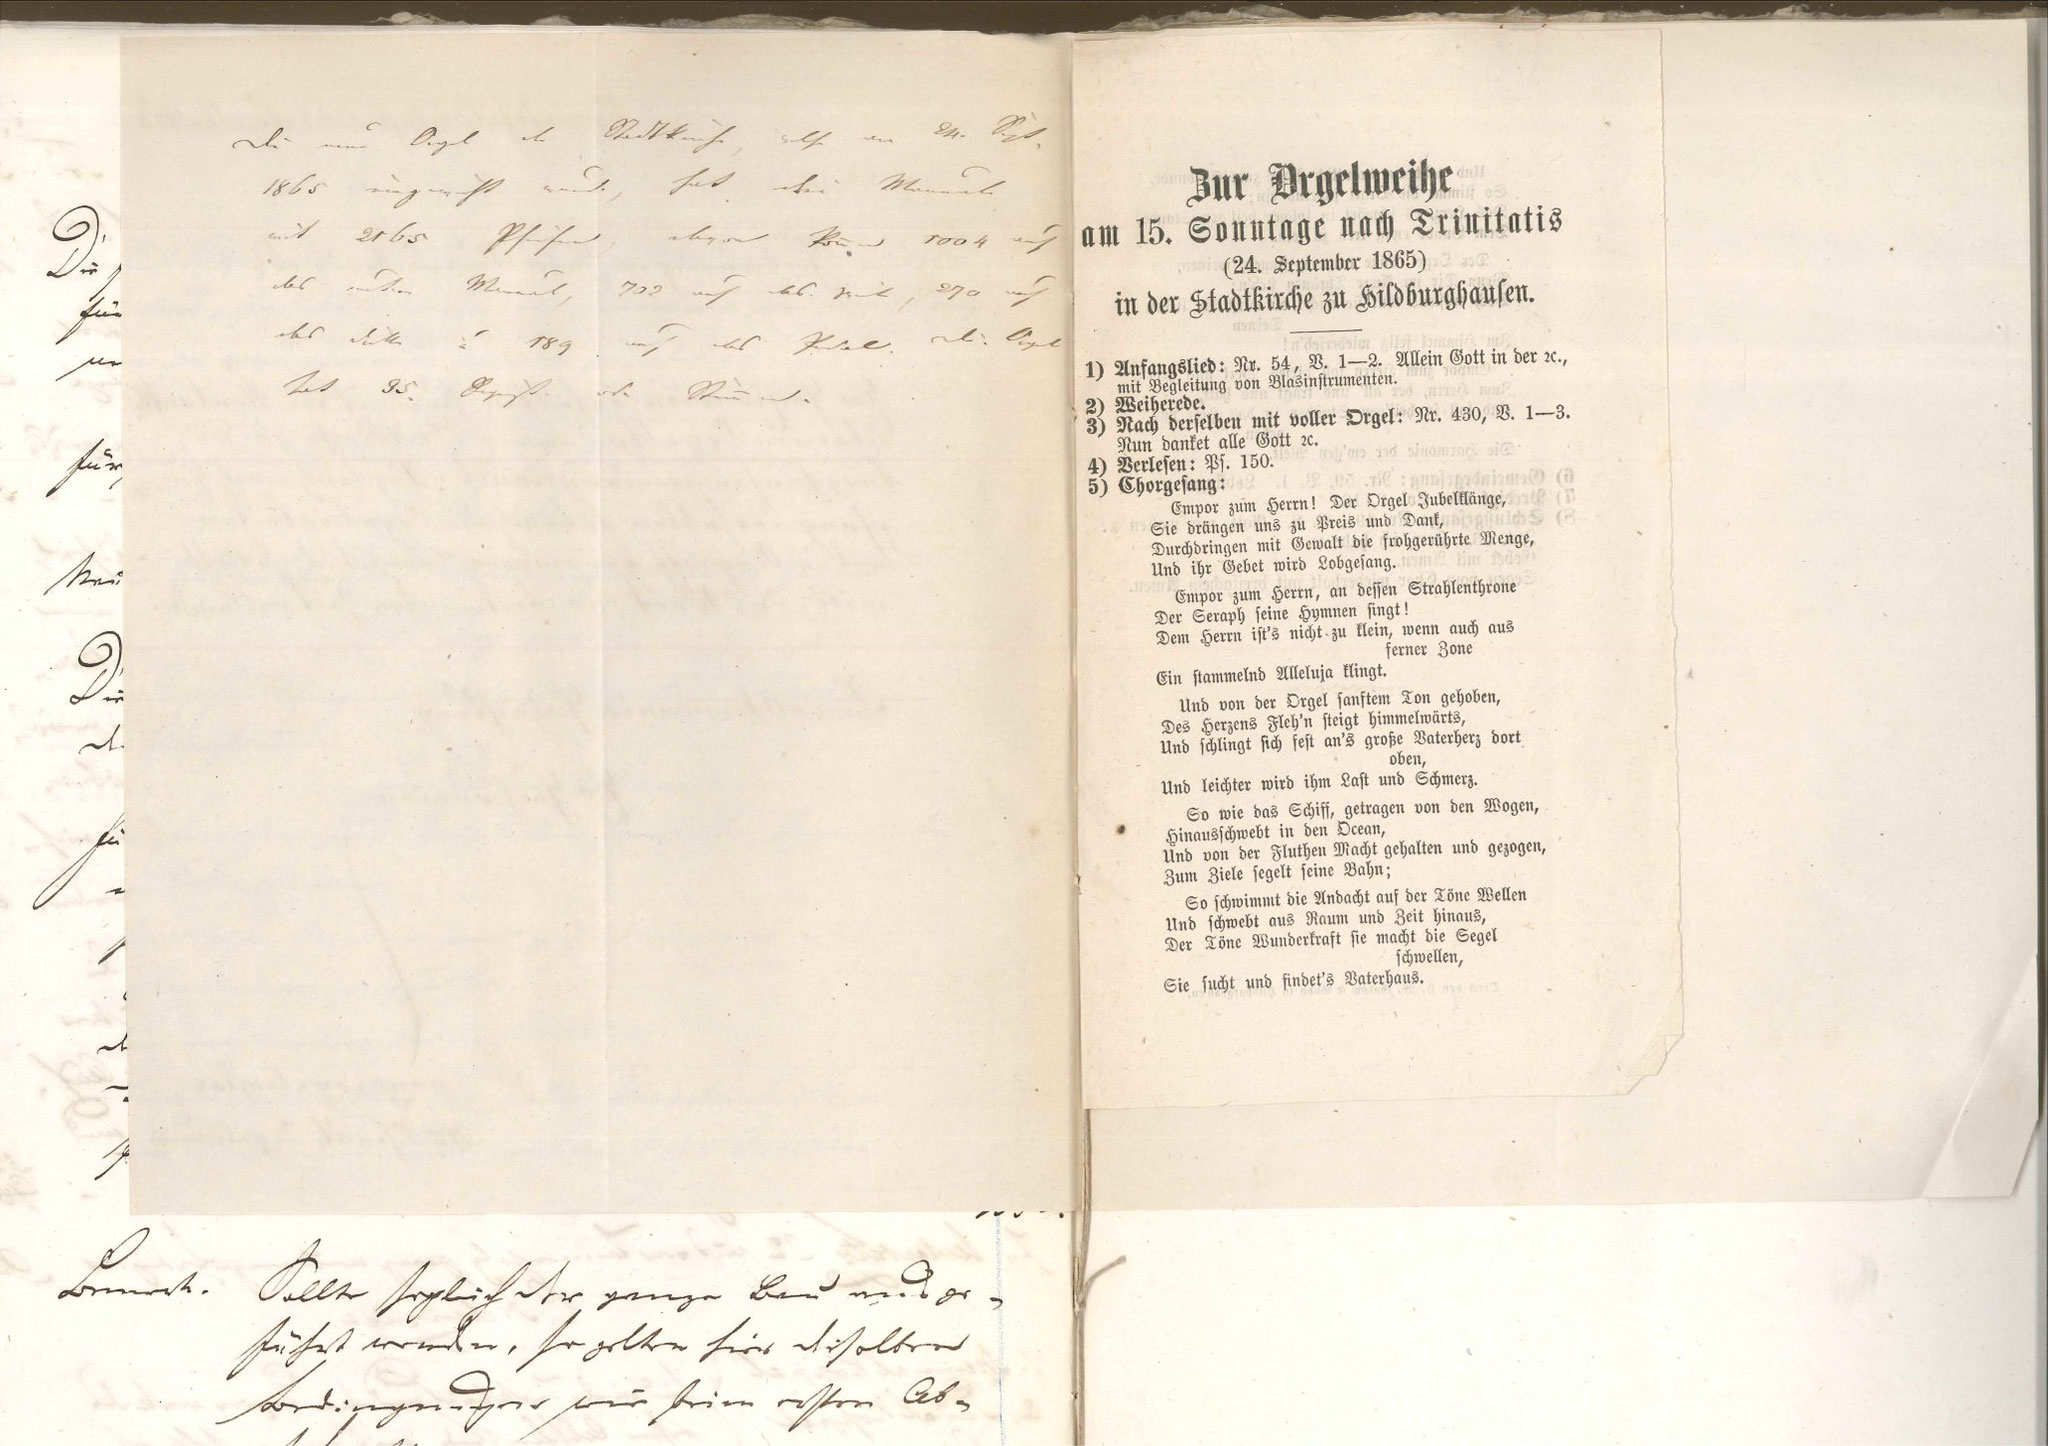 Die neue Orgel der Stadtkirche, welche am 24. Sept.
1865 eingeweiht wurde, hat drei Manuale
mit 2165 Pfeifen, davon kommen 1004 auf
das erste Manual, 702 auf das zweite, 270 auf
das dritte u. 189 auf das Pedal. Die Orgel
hat 35 Register oder Stimmen.
Die
für
für
Die
Bemerk. Sollte sogleich der ganze Bau ausge-
führt werden, so gelten hier dieselben
Bedingungen wie beim ersten Ab-
Zur Orgelweihe
am 15. Sonntage nach Trinitatis
(24. September 1865)
in der Stadtkirche zu Hildburghausen.
1) Anfangslied: Nr. 54, V. 1—2. Allein Gott in der ꝛc.,
mit Begleitung von Blasinstrumenten.
2) Weiherede.
3) Nach derselben mit voller Orgel: Nr. 430, V. 1—3.
Nun danket alle Gott ꝛc.
4) Verlesen: Ps. 150.
5) Chorgesang:
Empor zum Herrn! Der Orgel Jubelklänge,
Sie drängen uns zu Preis und Dank,
Durchdringen mit Gewalt die frohgerührte Menge,
Und ihr Gebet wird Lobgesang.
Empor zum Herrn, an dessen Strahlenthrone
Der Seraph seine Hymnen singt!
Dem Herrn ist's nicht zu klein, wenn auch aus
ferner Zone
Ein stammelnd Alleluja klingt.
Und von der Orgel sanftem Ton gehoben,
Des Herzens Fleh'n steigt himmelwärts,
Und schlingt sich fest an's große Vaterherz dort
oben,
Und leichter wird ihm Last und Schmerz.
So wie das Schiff, getragen von den Wogen,
Hinausschwebt in den Ocean,
Und von der Fluthen Macht gehalten und gezogen,
Zum Ziele segelt seine Bahn;
So schwimmt die Andacht auf der Töne Wellen
Und schwebt aus Raum und Zeit hinaus,
Der Töne Wunderkraft sie macht die Segel
schwellen,
Sie sucht und findet's Vaterhaus.